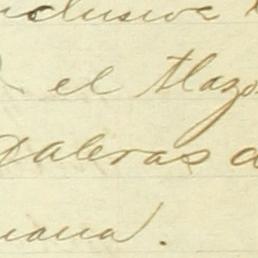 nclusive
el plazo
galeras d
uana.